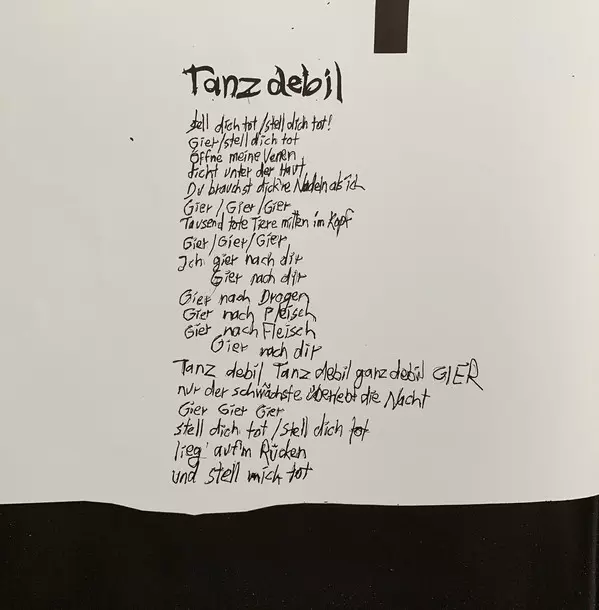 Tanz debil
stell dich tot/stell dich tot!
Gier/stell dich tot
Öffne meine Venen
dicht unter der Haut
Du brauchst dick're Nadeln als ich
Gier/Gier/Gier
Tausend tote Tiere mitten im Kopf
Gier/Gier/Gier
Ich gier nach dir
Gier nach dir
Gier nach Drogen
Gier nach Pleisch
Gier nach Fleisch
Gier nach dir
Tanz debil Tanz debil ganz debil GIER
nur der schwächste überlebt die Nacht
Gier Gier Gier
stell dich tot/stell dich tot
lieg' auf'm Rücken
und stell mich tot